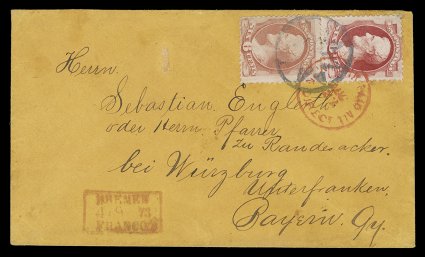 Herrn.
Sebastian Englerth
oder Herrn Pfarrer
zu Randesacker.
bei Würzburg
Unterfranken.
Bayern. Gy.
BREMEN
73
FRANCO